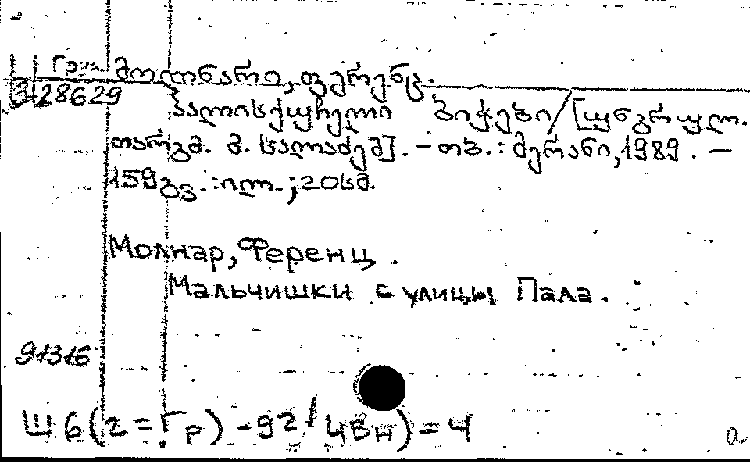 Гру მოლნარი, ფერენც.
3428629 პალისქუჩელი ბიჭები/[უნგრულ.
თარგმ. მ. სალაძემ]. – თბ. : მერანი, 1989. –
159გვ. : ილ. ; 20სმ.
Молнар, Ференц.
Мальчишки с улицы Пала.
91316
Ш6(2=Гр)-92/4Вн)=4